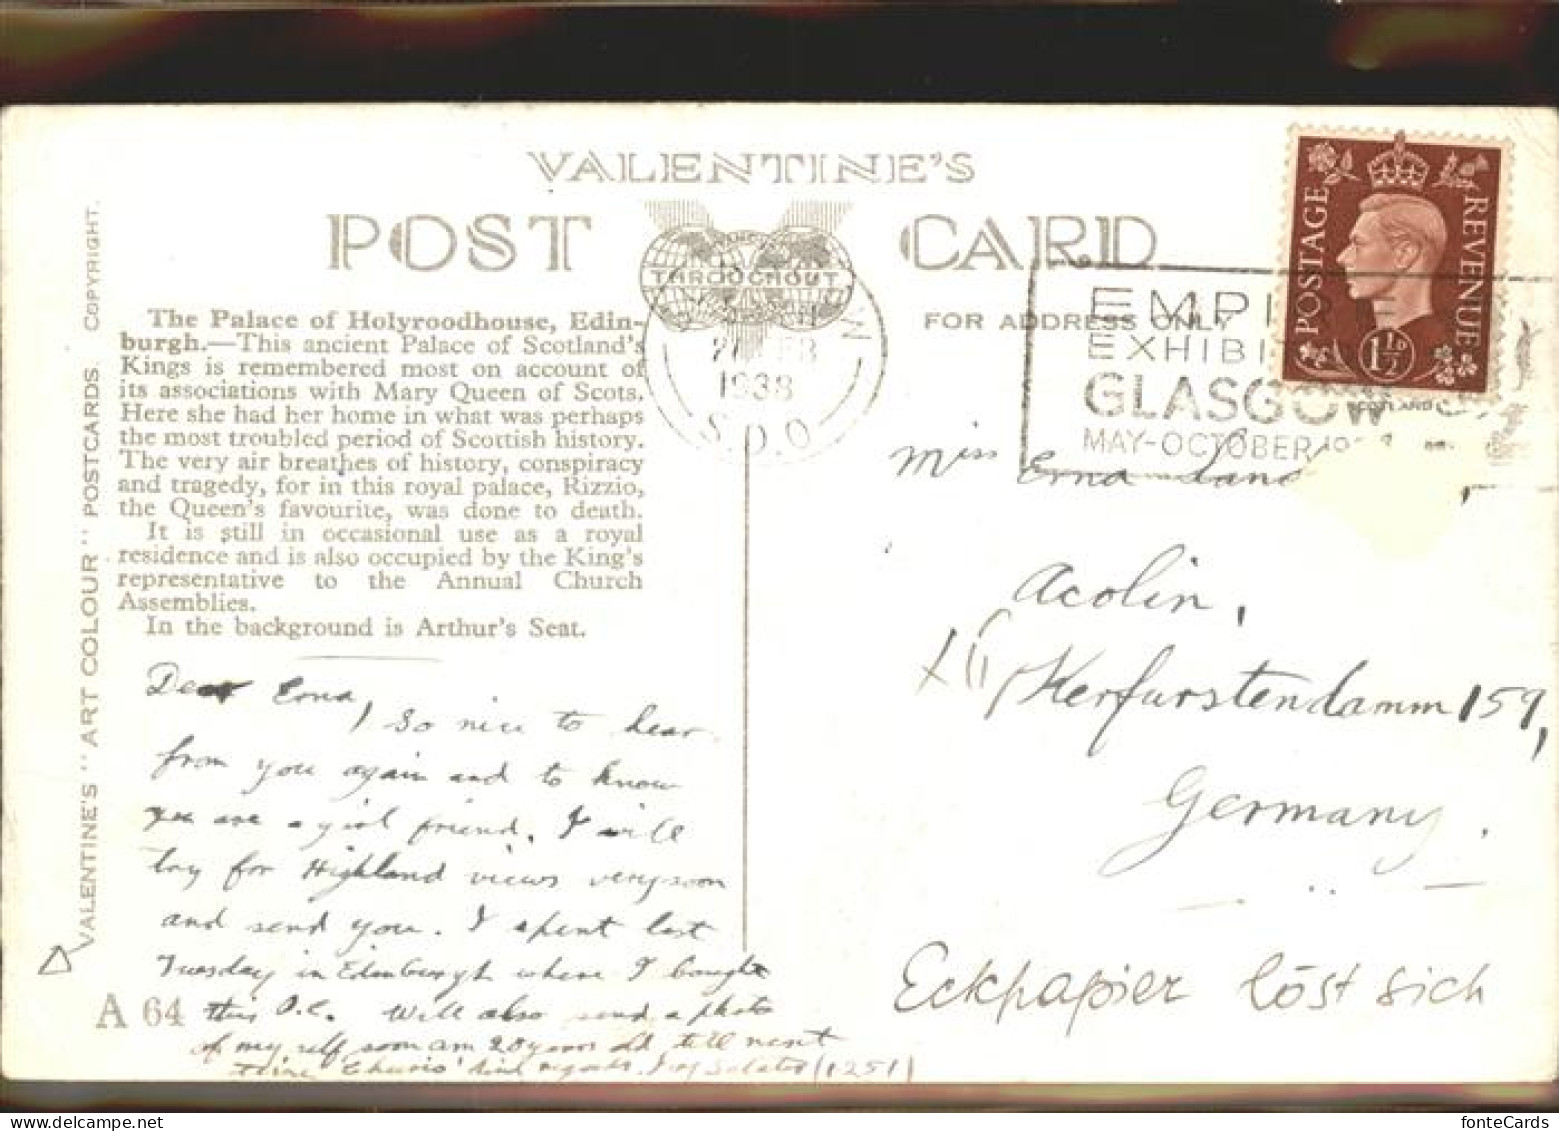 VALENTINE'S
POST CARD
THROUGHOUT
FOR ADDRESS ONLY
VALENTINE'S "ART COLOUR" POSTCARDS. COPYRIGHT.
The Palace of Holyroodhouse, Edin-
burgh.—This ancient Palace of Scotland's
Kings is remembered most on account of
its associations with Mary Queen of Scots.
Here she had her home in what was perhaps
the most troubled period of Scottish history.
The very air breathes of history, conspiracy
and tragedy, for in this royal palace, Rizzio,
the Queen's favourite, was done to death.
It is still in occasional use as a royal
residence and is also occupied by the King's
representative to the Annual Church
Assemblies.
In the background is Arthur's Seat.
Dear Erna,
So nice to hear
from you again and to know
you are a girl friend. I will
try for Highland views very soon
and send you. I spent last
Tuesday in Edinburgh where I bought
this P.C. Will also send a photo
of myself soon am 20 years old till next
time Cheerio kind regards
(1251)
A 64
1938
S.D.O
EMPI
EXHIBI
GLASGOW
MAY-OCTOBER
POSTAGE
REVENUE
1½D
Miss Erna
Acolin,
Kerfurstendamm 159,
Germany.
Eckpapier löst sich
fonteCards